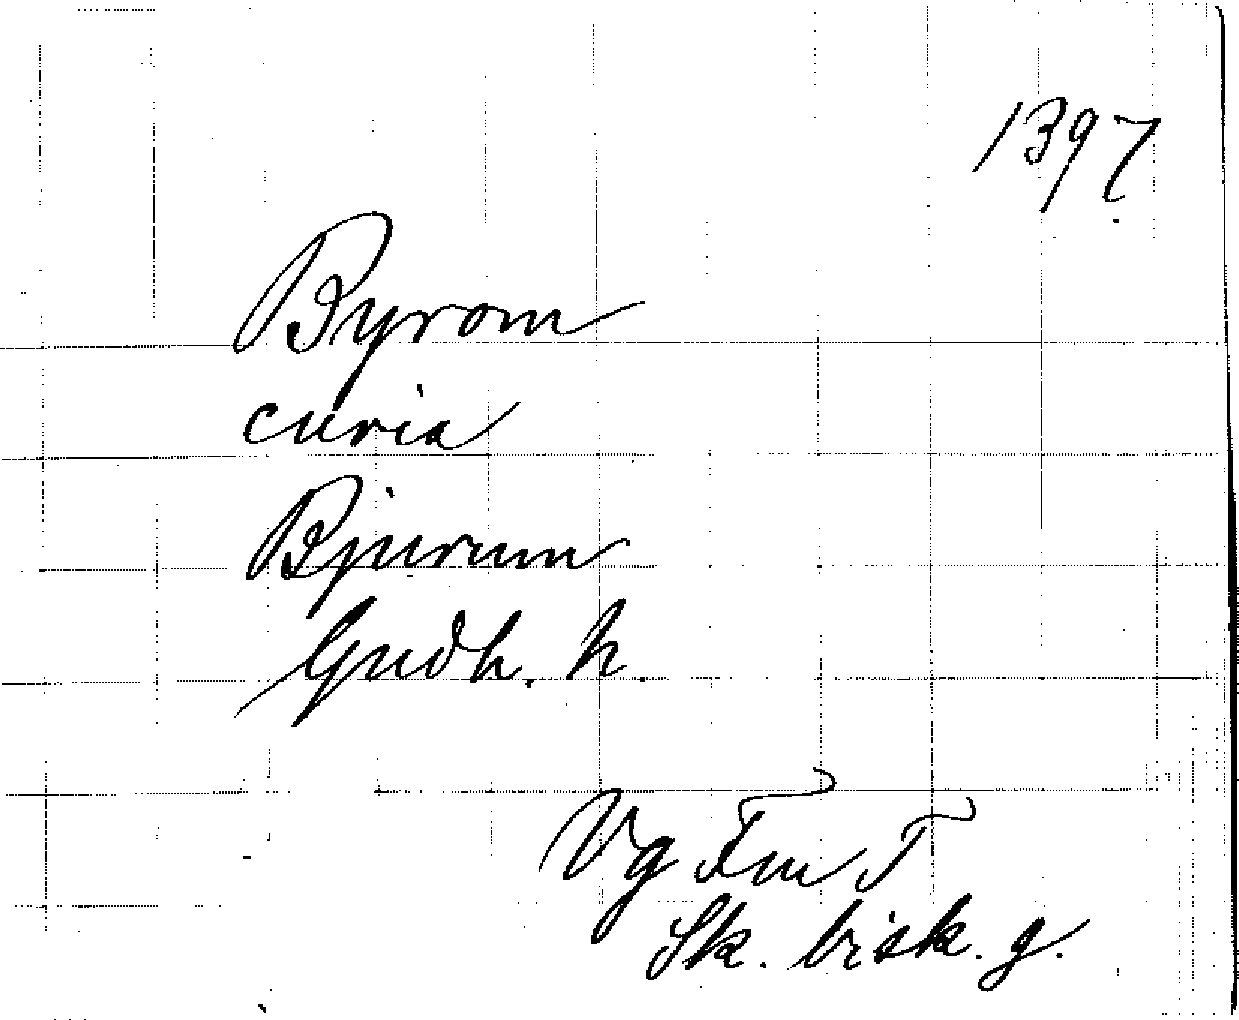 1397
Byrom
curia
Bjurum
Gudh. h.
Vg Fm T
Sk. bisk. g.